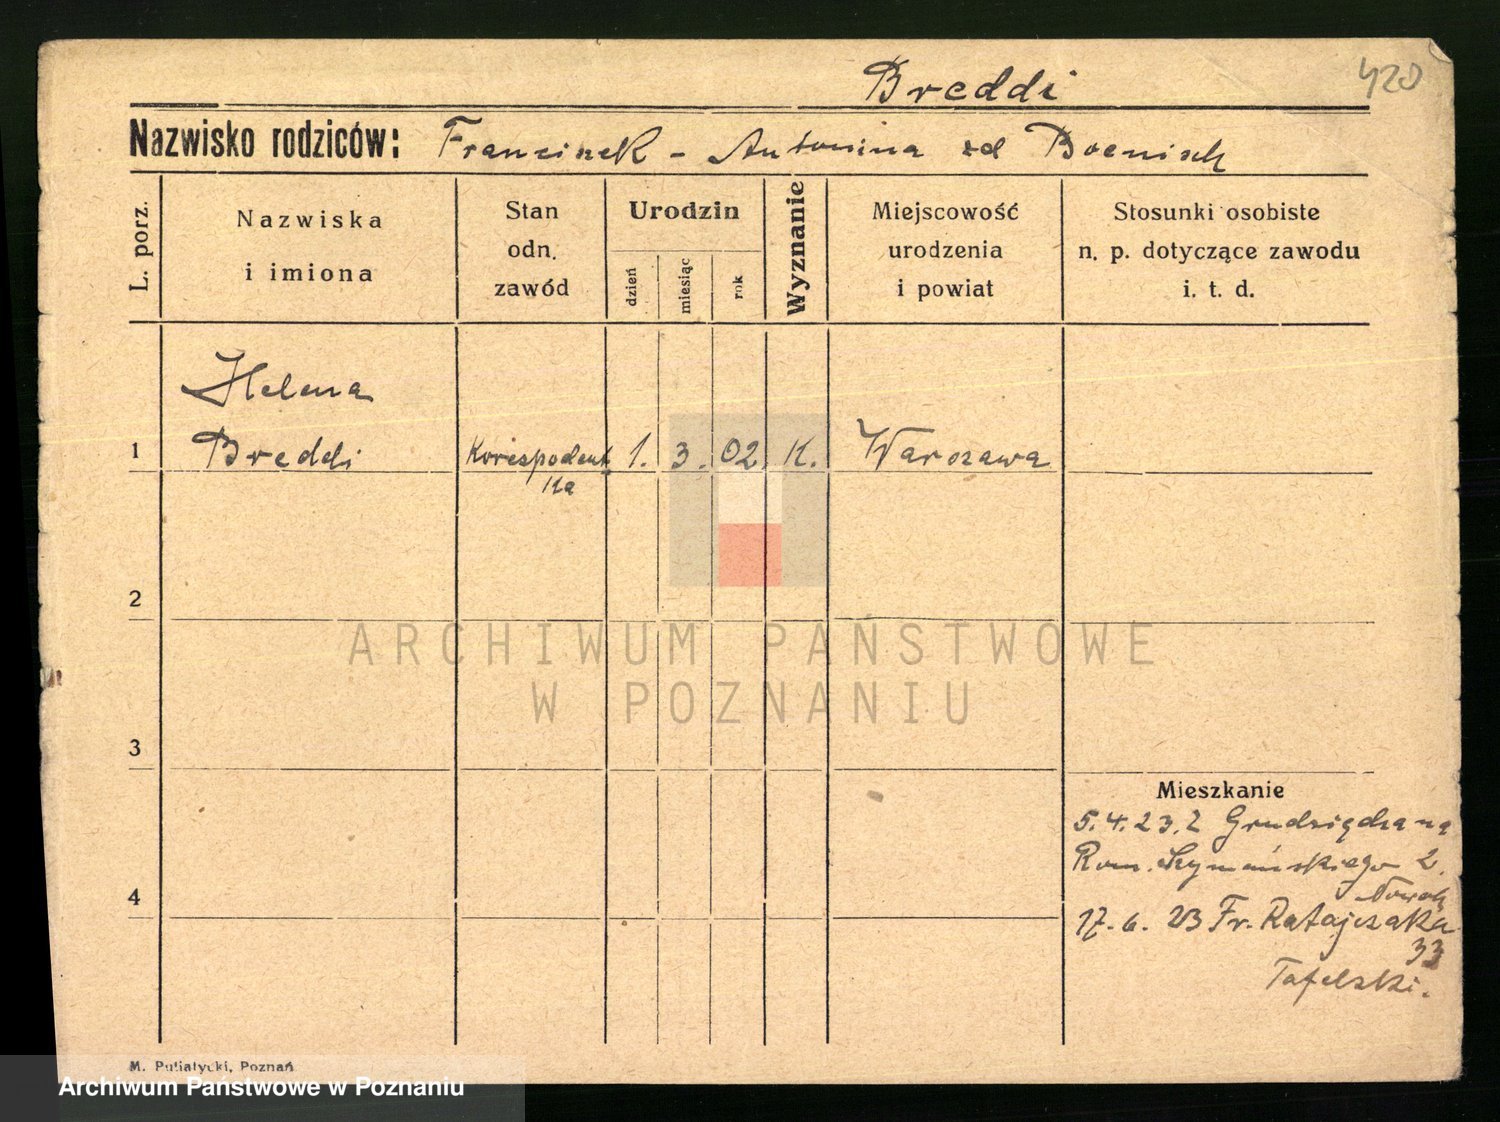 Breddi
420
Nazwisko rodziców: Franciszek - Antonina zd Boenisch
L. porz.
Nazwiska
i imiona
Stan
odn.
zawód
Urodzin
dzień
miesiąc
rok
Wyznanie
Miejscowość
urodzenia
i powiat
Stosunki osobiste
n. p. dotyczące zawodu
i. t. d.
Helena
1 Breddi Korespodent 1. 3. 02 K. Warszawa
ka
2
ARCHIWUM PAŃSTWOWE
W POZNANIU
3
Mieszkanie
5.4.23. z Grudziądza na
Rom. Szymańskiego 2.
Nowak
4
17.6.23 Fr. Ratajczaka
33
Tafelski.
M. Putiatycki, Poznań
Archiwum Państwowe w Poznaniu